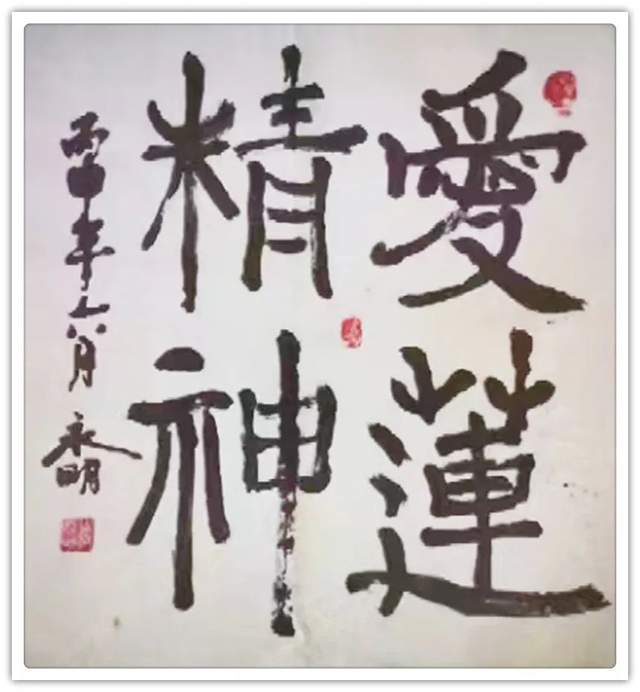 愛蓮
精神
丙申年六月 永明